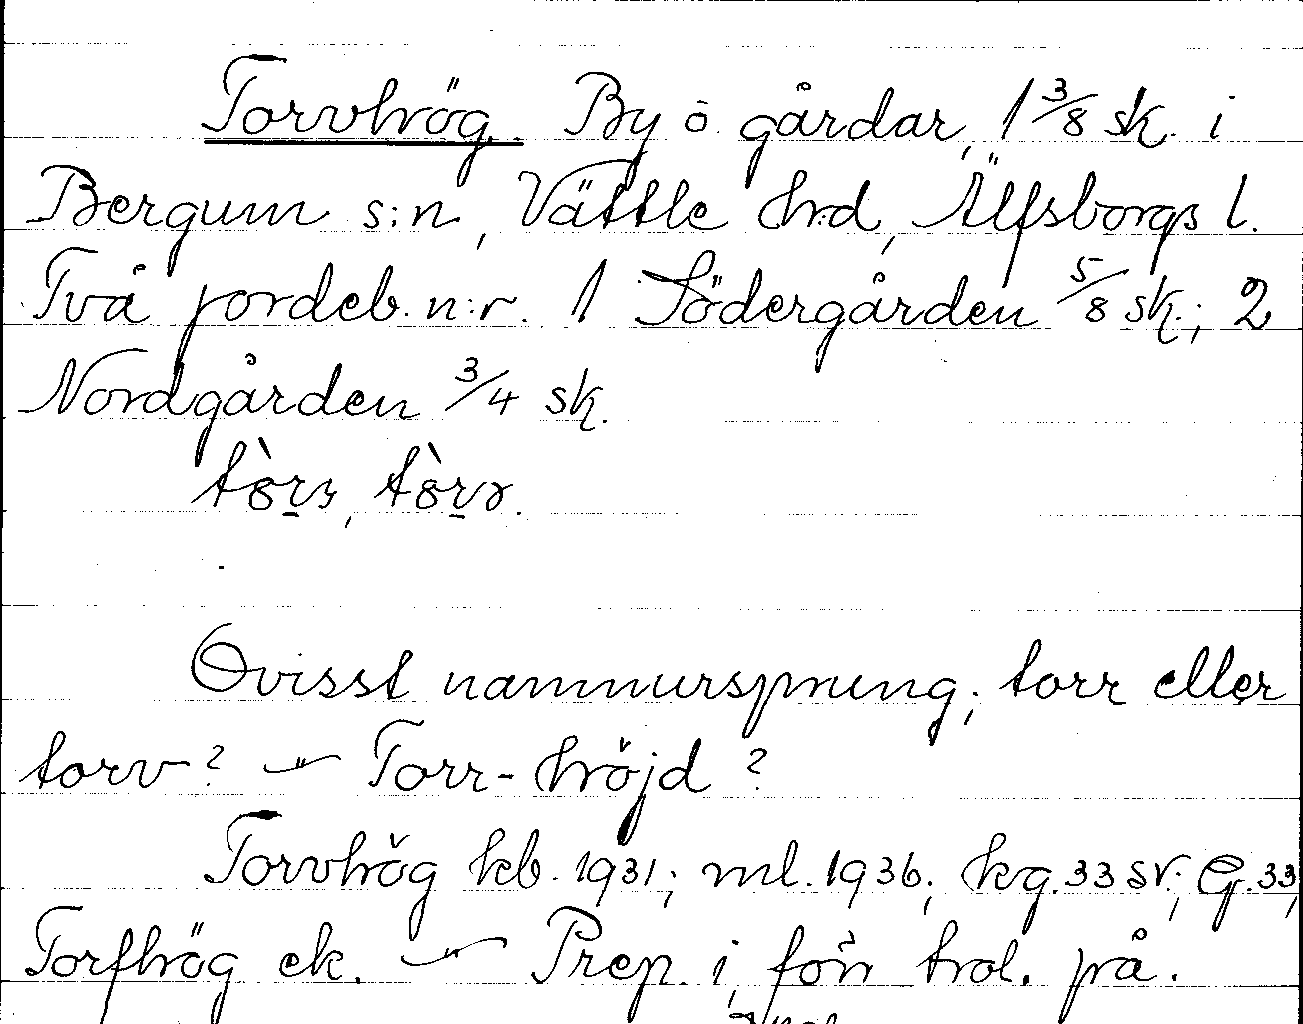 Torvhög. By o. gårdar, 1 3/8 sk. i
Bergum s:n, Vättle h:d, Älfsborgs l.
Två jordeb. n:r. 1 Södergården 5/8 sk.; 2
Nordgården 3/4 sk.
Ovisst namnursprung; torr eller
torv? — Torr-höjd?
Torvhög kb. 1931; ml. 1936; kg. 33 sv.; G. 33,
Torfhög ek. — Prep. i, förr trol. på.